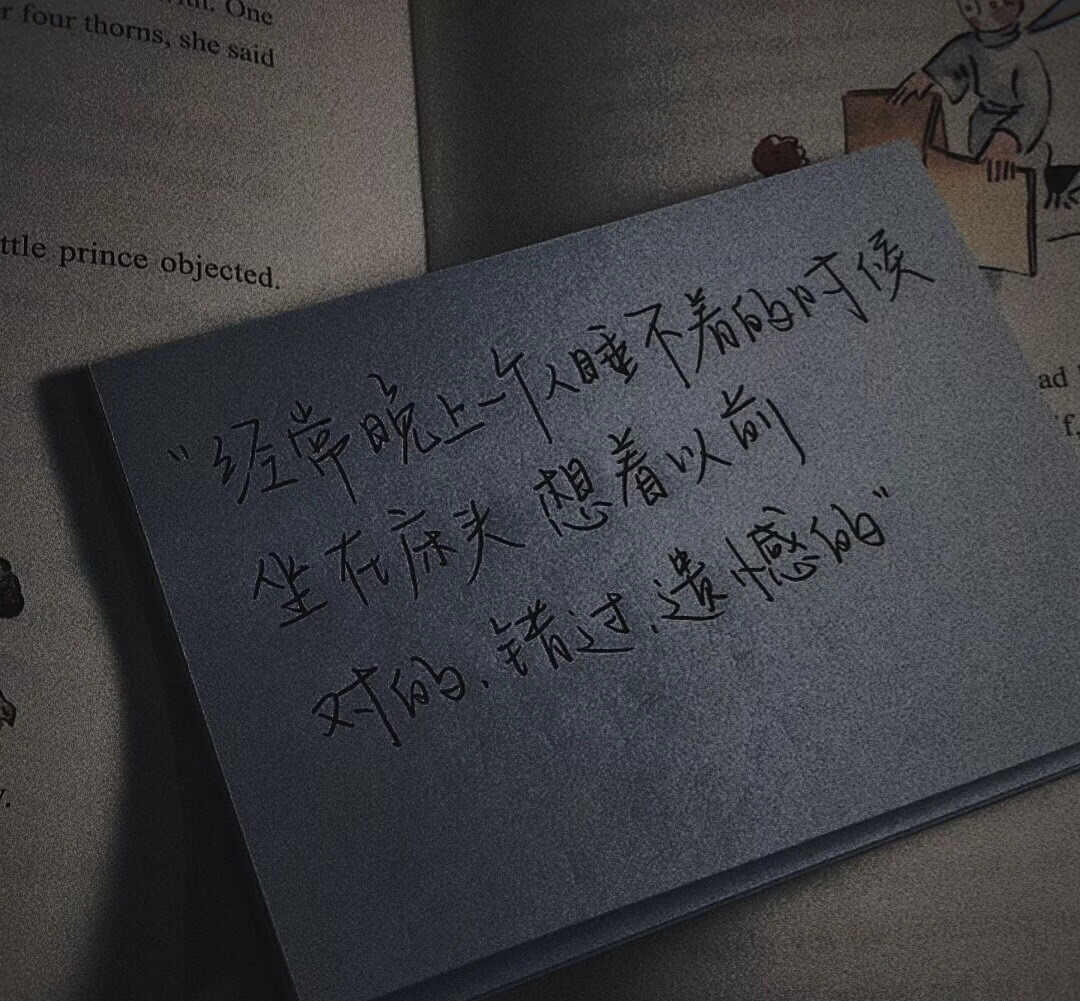 One
four thorns, she said
ttle prince objected.
"经常晚上一个人睡不着的时候
坐在床头 想着以前
对的.错过.遗憾的"
ad
f.